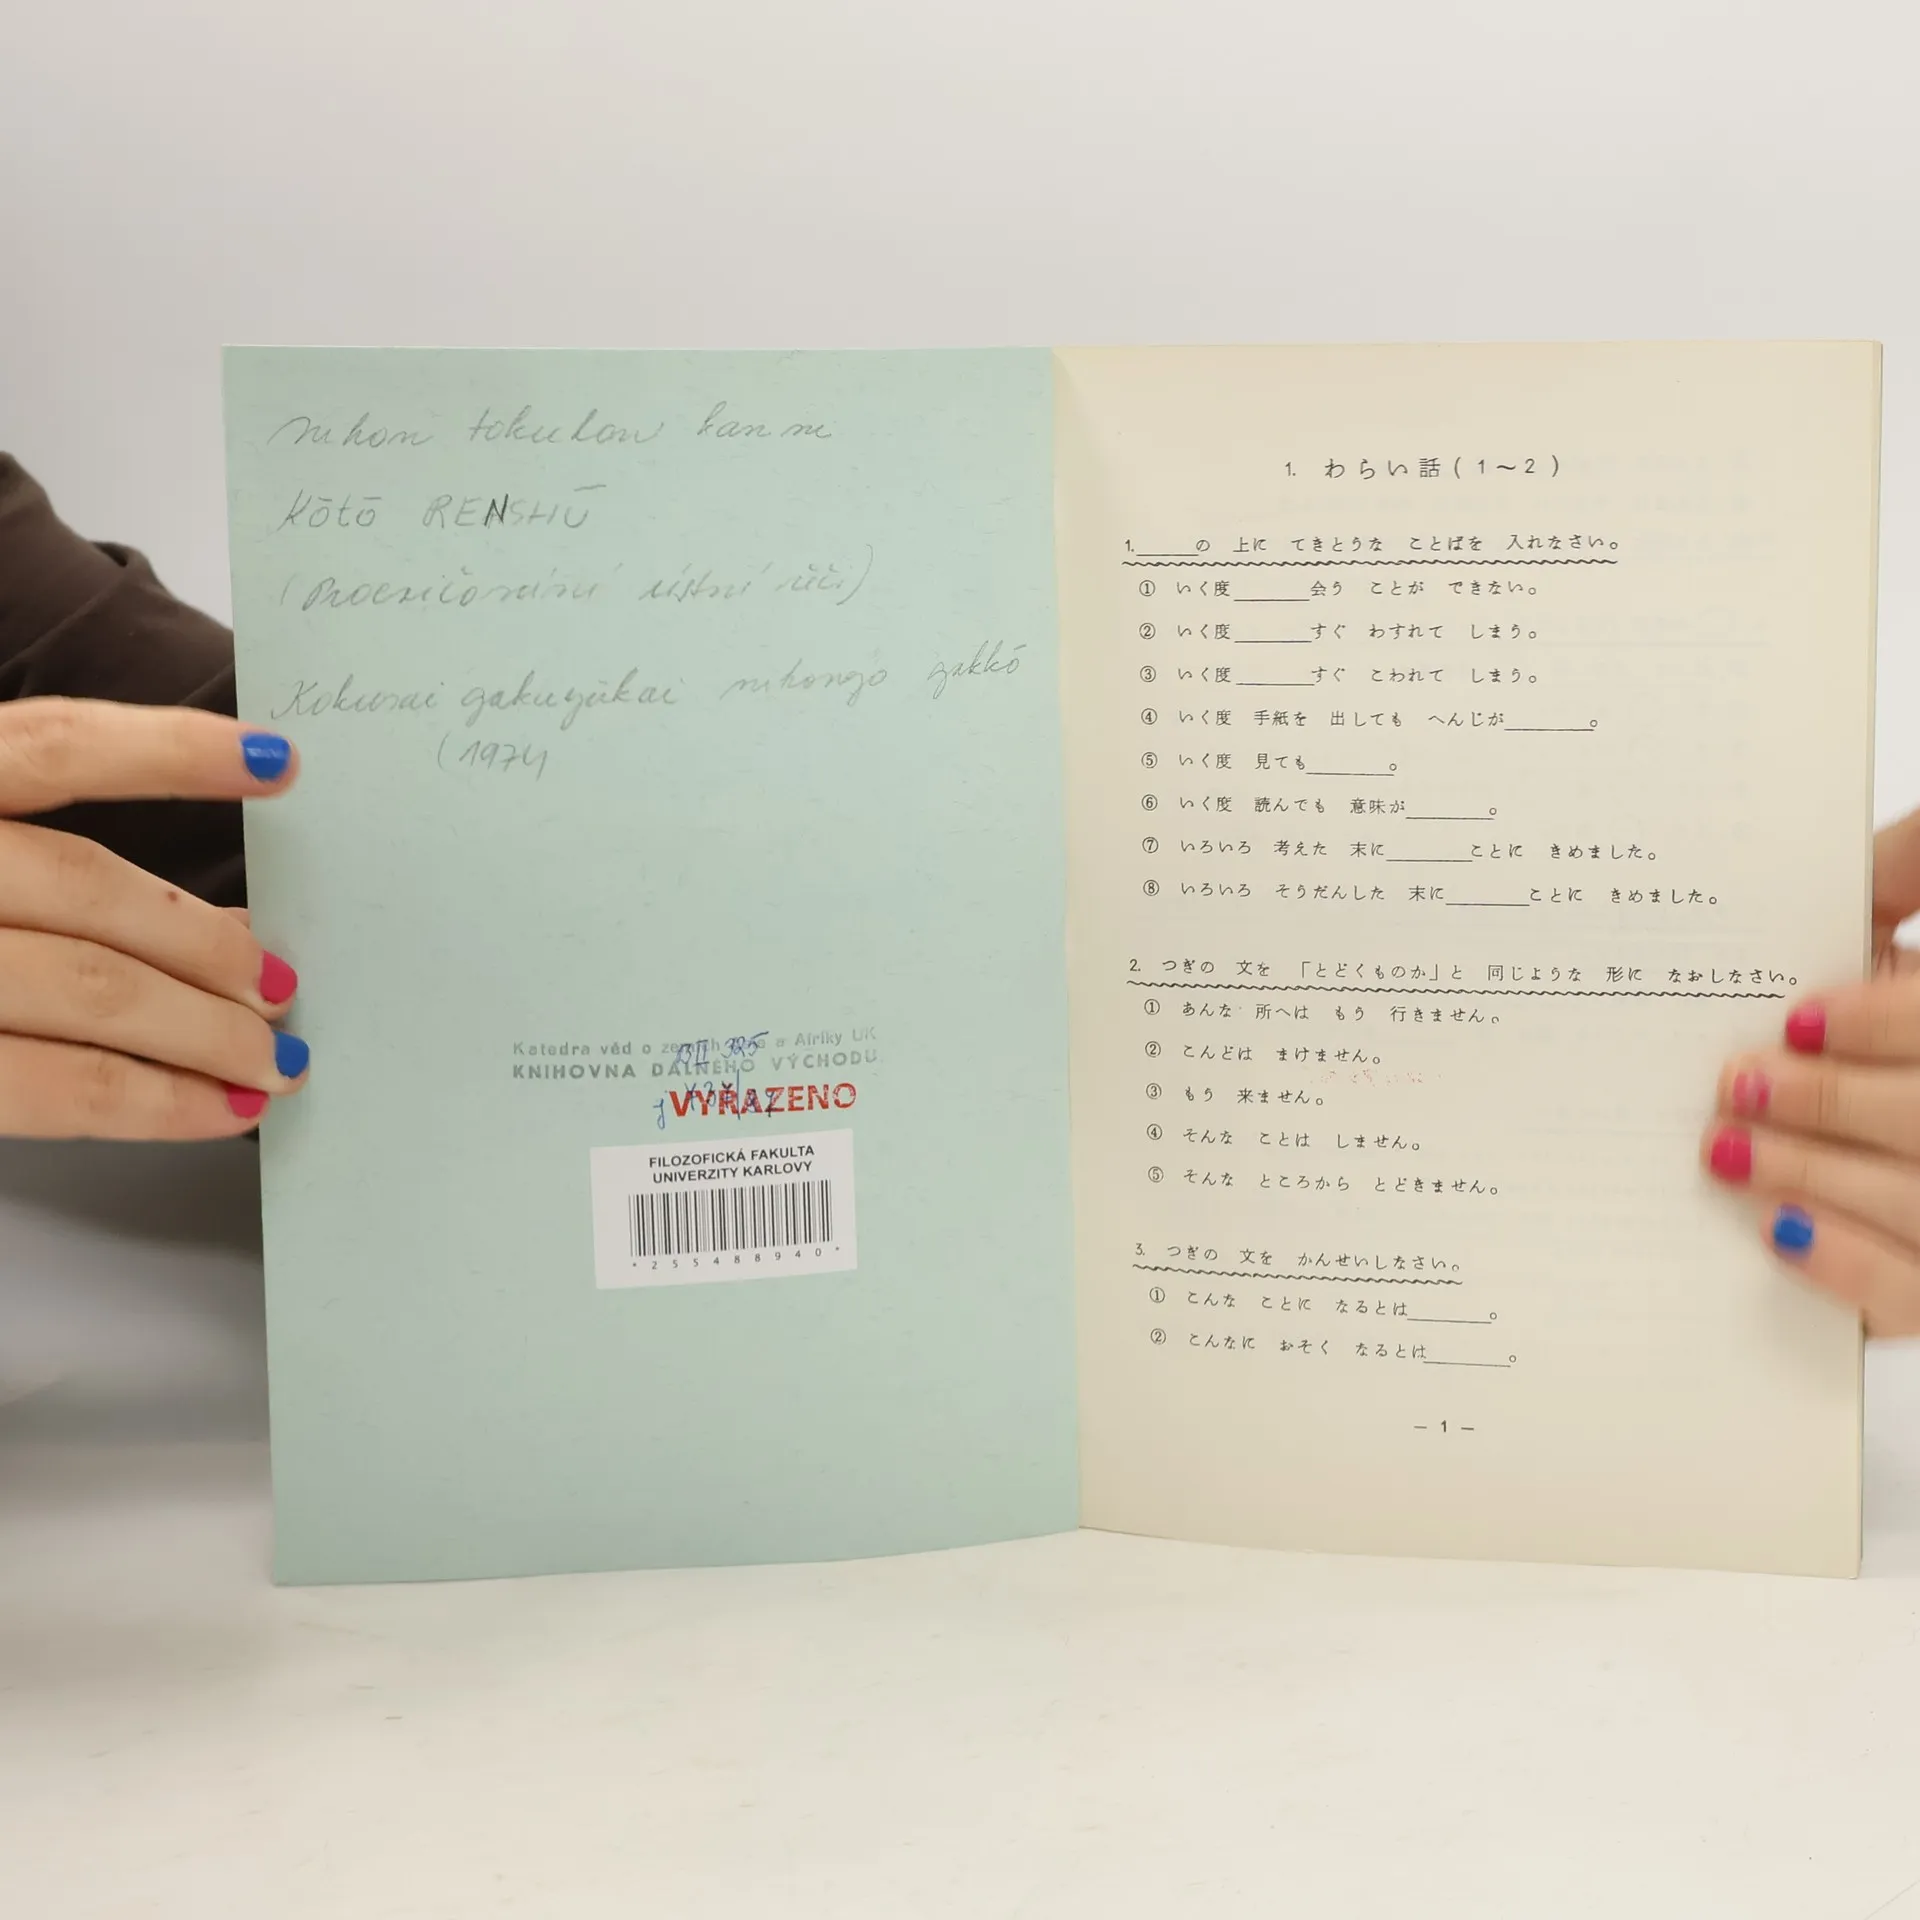 Kōtō RENSHŪ
(Procvičování ústní řeči)
Kokusai gakuyūkai nihongo gakkō
(1974)
Katedra věd o zemích Asie a Afriky UK
KNIHOVNA DÁLNÉHO VÝCHODU
VYŘAZENO
FILOZOFICKÁ FAKULTA
UNIVERZITY KARLOVY
* 2 5 5 4 8 8 9 4 0 *
1. わらい話(1〜2)
1.______の 上に てきとうな ことばを 入れなさい。
① いく度________会う ことが できない。
② いく度________すぐ わすれて しまう。
③ いく度________すぐ こわれて しまう。
④ いく度 手紙を 出しても へんじが_________。
⑤ いく度 見ても_________。
⑥ いく度 読んでも 意味が_________。
⑦ いろいろ 考えた 末に_________ことに きめました。
⑧ いろいろ そうだんした 末に_________ことに きめました。
2. つぎの 文を 「とどくものか」と 同じような 形に なおしなさい。
① あんな 所へは もう 行きません。
② こんどは まけません。
③ もう 来ません。
④ そんな ことは しません。
⑤ そんな ところから とどきません。
3. つぎの 文を かんせいしなさい。
① こんな ことに なるとは_________。
② こんなに おそく なるとは_________。
— 1 —